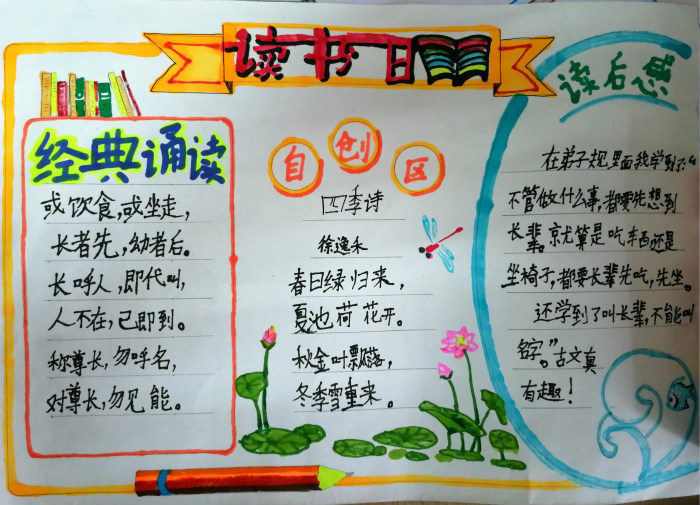 读书日
经典诵读
或饮食,或坐走,
长者先,幼者后。
长呼人,即代叫,
人不在,己即到。
称尊长,勿呼名,
对尊长,勿见能。
自创区
四季诗
徐逸禾
春日绿归来,
夏池荷花开。
秋金叶飘落,
冬季雪重来。
读后感
在弟子规里面我学到了:“
不管做什么事,都要先想到
长辈。就算是吃东西还是
坐椅子,都要长辈先吃,先坐。
还学到了叫长辈,不能叫
名字。”古文真
有趣!